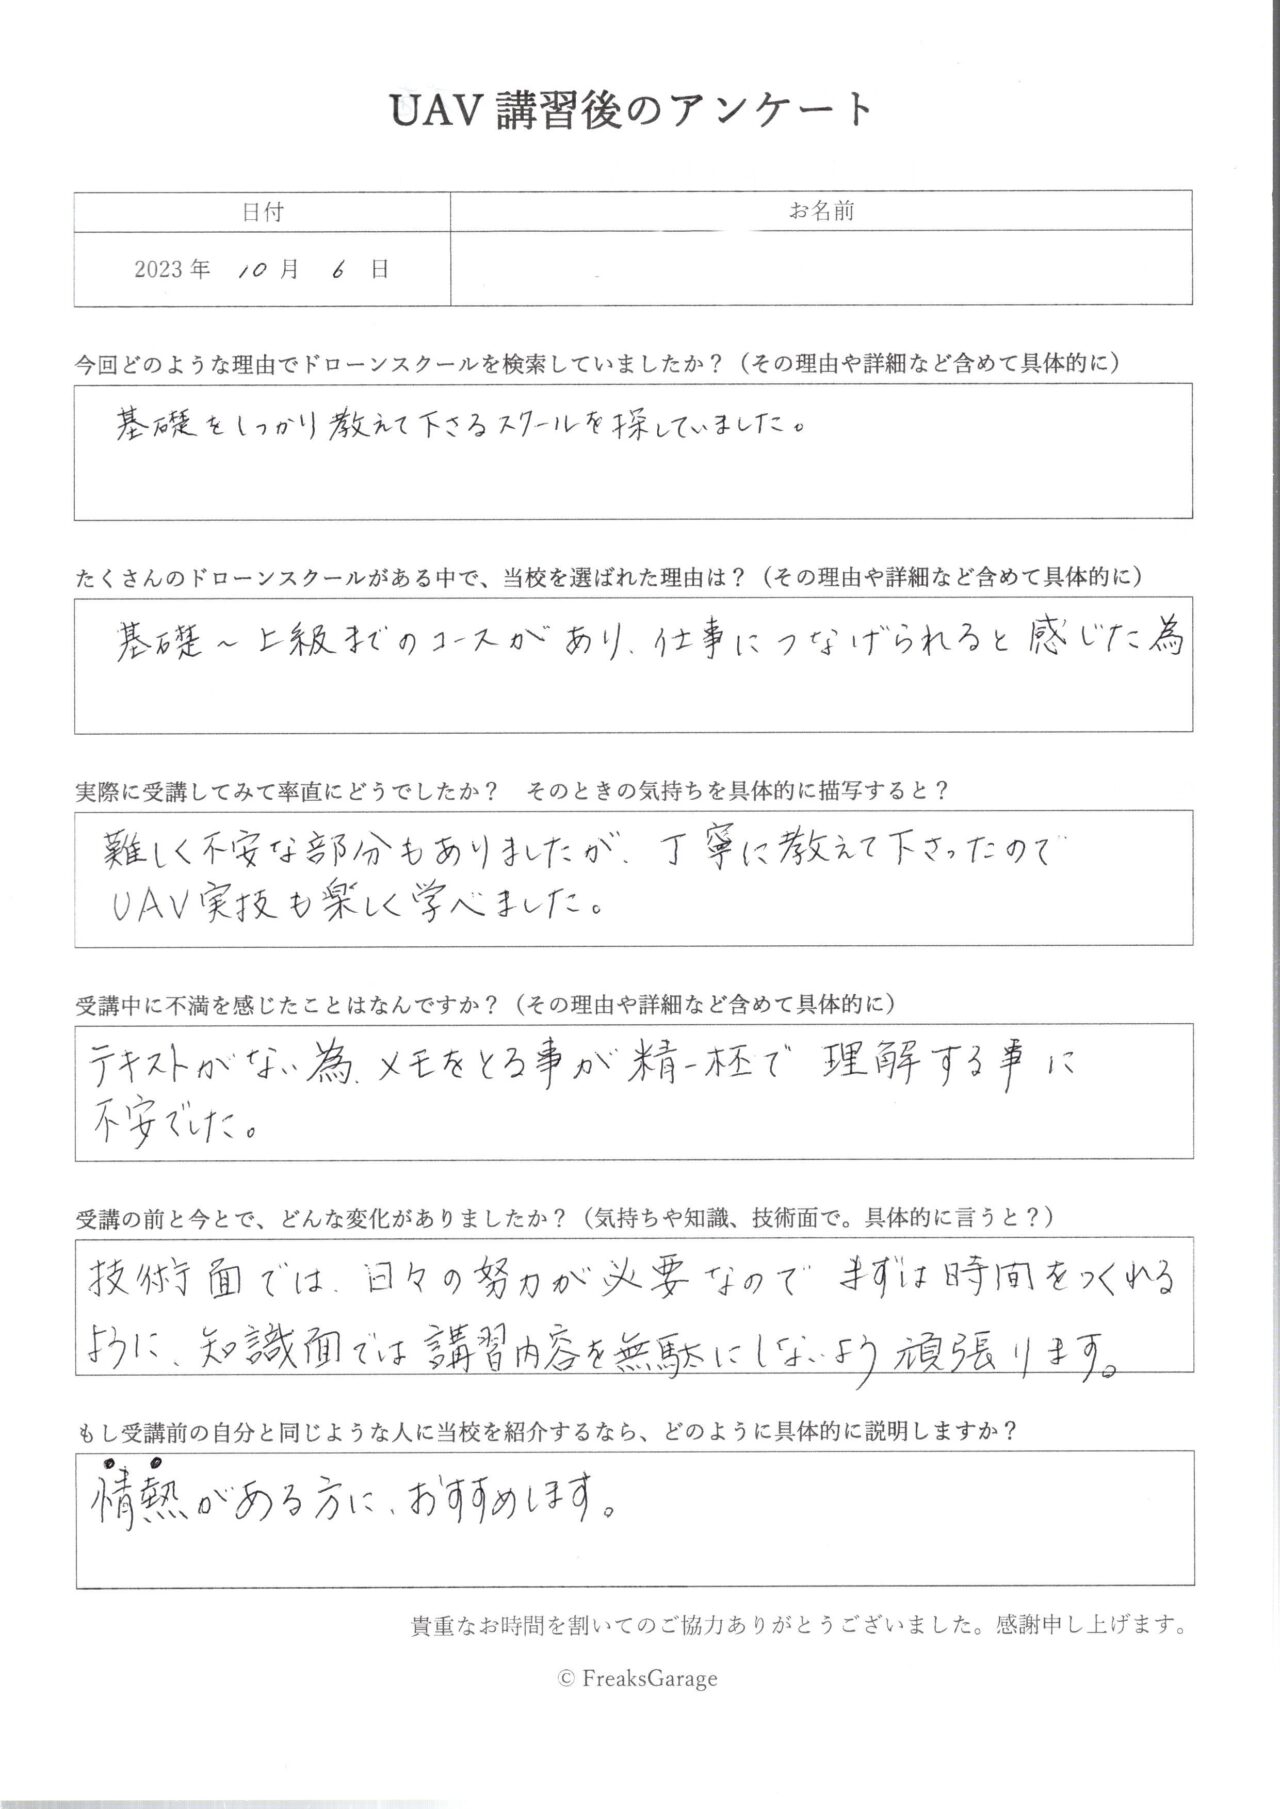 UAV 講習後のアンケート
日付
お名前
2023 年 10 月 6 日
今回どのような理由でドローンスクールを検索していましたか？（その理由や詳細など含めて具体的に）
基礎をしっかり教えて下さるスクールを探していました。
たくさんのドローンスクールがある中で、当校を選ばれた理由は？（その理由や詳細など含めて具体的に）
基礎～上級までのコースがあり、仕事につなげられると感じた為
実際に受講してみて率直にどうでしたか？　そのときの気持ちを具体的に描写すると？
難しく不安な部分もありましたが、丁寧に教えて下さったので
UAV実技も楽しく学べました。
受講中に不満を感じたことはなんですか？（その理由や詳細など含めて具体的に）
テキストがない為、メモをとる事が精一杯で 理解する事に
不安でした。
受講の前と今とで、どんな変化がありましたか？（気持ちや知識、技術面で。具体的に言うと？）
技術面では、日々の努力が必要なので まずは時間をつくれる
ように、知識面では講習内容を無駄にしないよう頑張ります。
もし受講前の自分と同じような人に当校を紹介するなら、どのように具体的に説明しますか？
情熱がある方に、おすすめします。
貴重なお時間を割いてのご協力ありがとうございました。感謝申し上げます。
© FreaksGarage